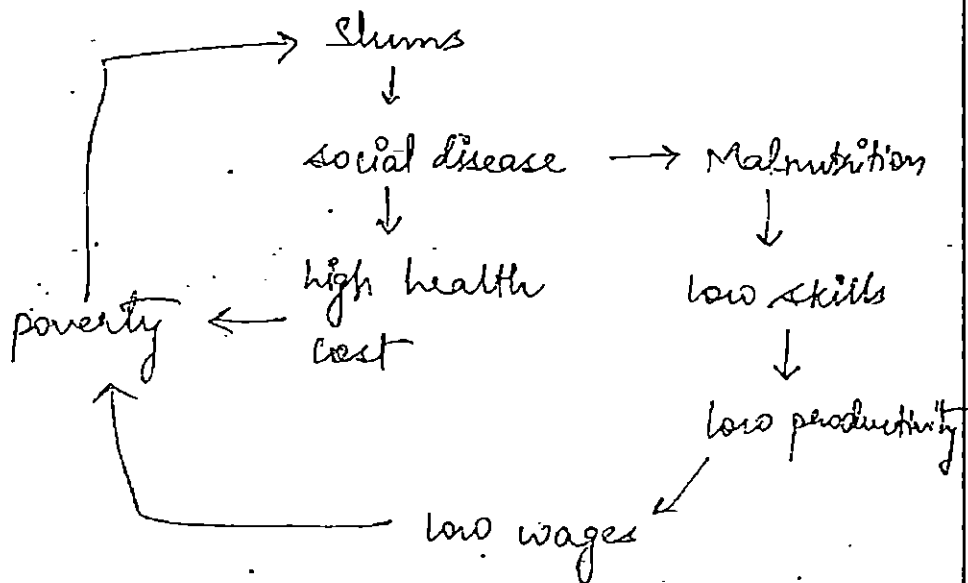 Slums
social disease → Malnutrition
high health
cost
low skills
poverty
low productivity
low wages